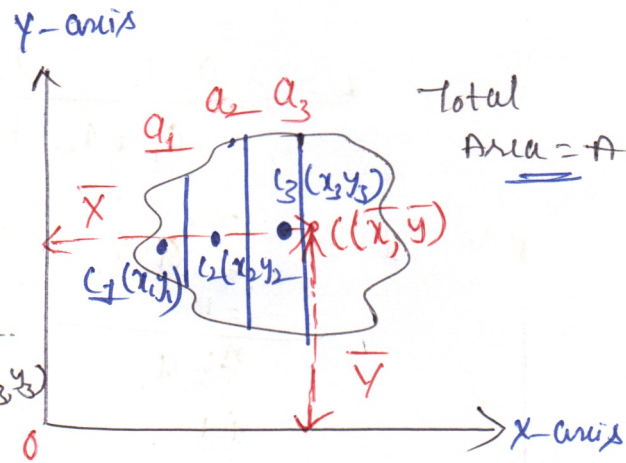 Y-axis
a1 a2 a3
Total
Area = A
X̄
C3(x3y3)
C(x̄, ȳ)
C1(x1y1)
C2(x2y2
Ȳ
3,y3)
0
X-axis